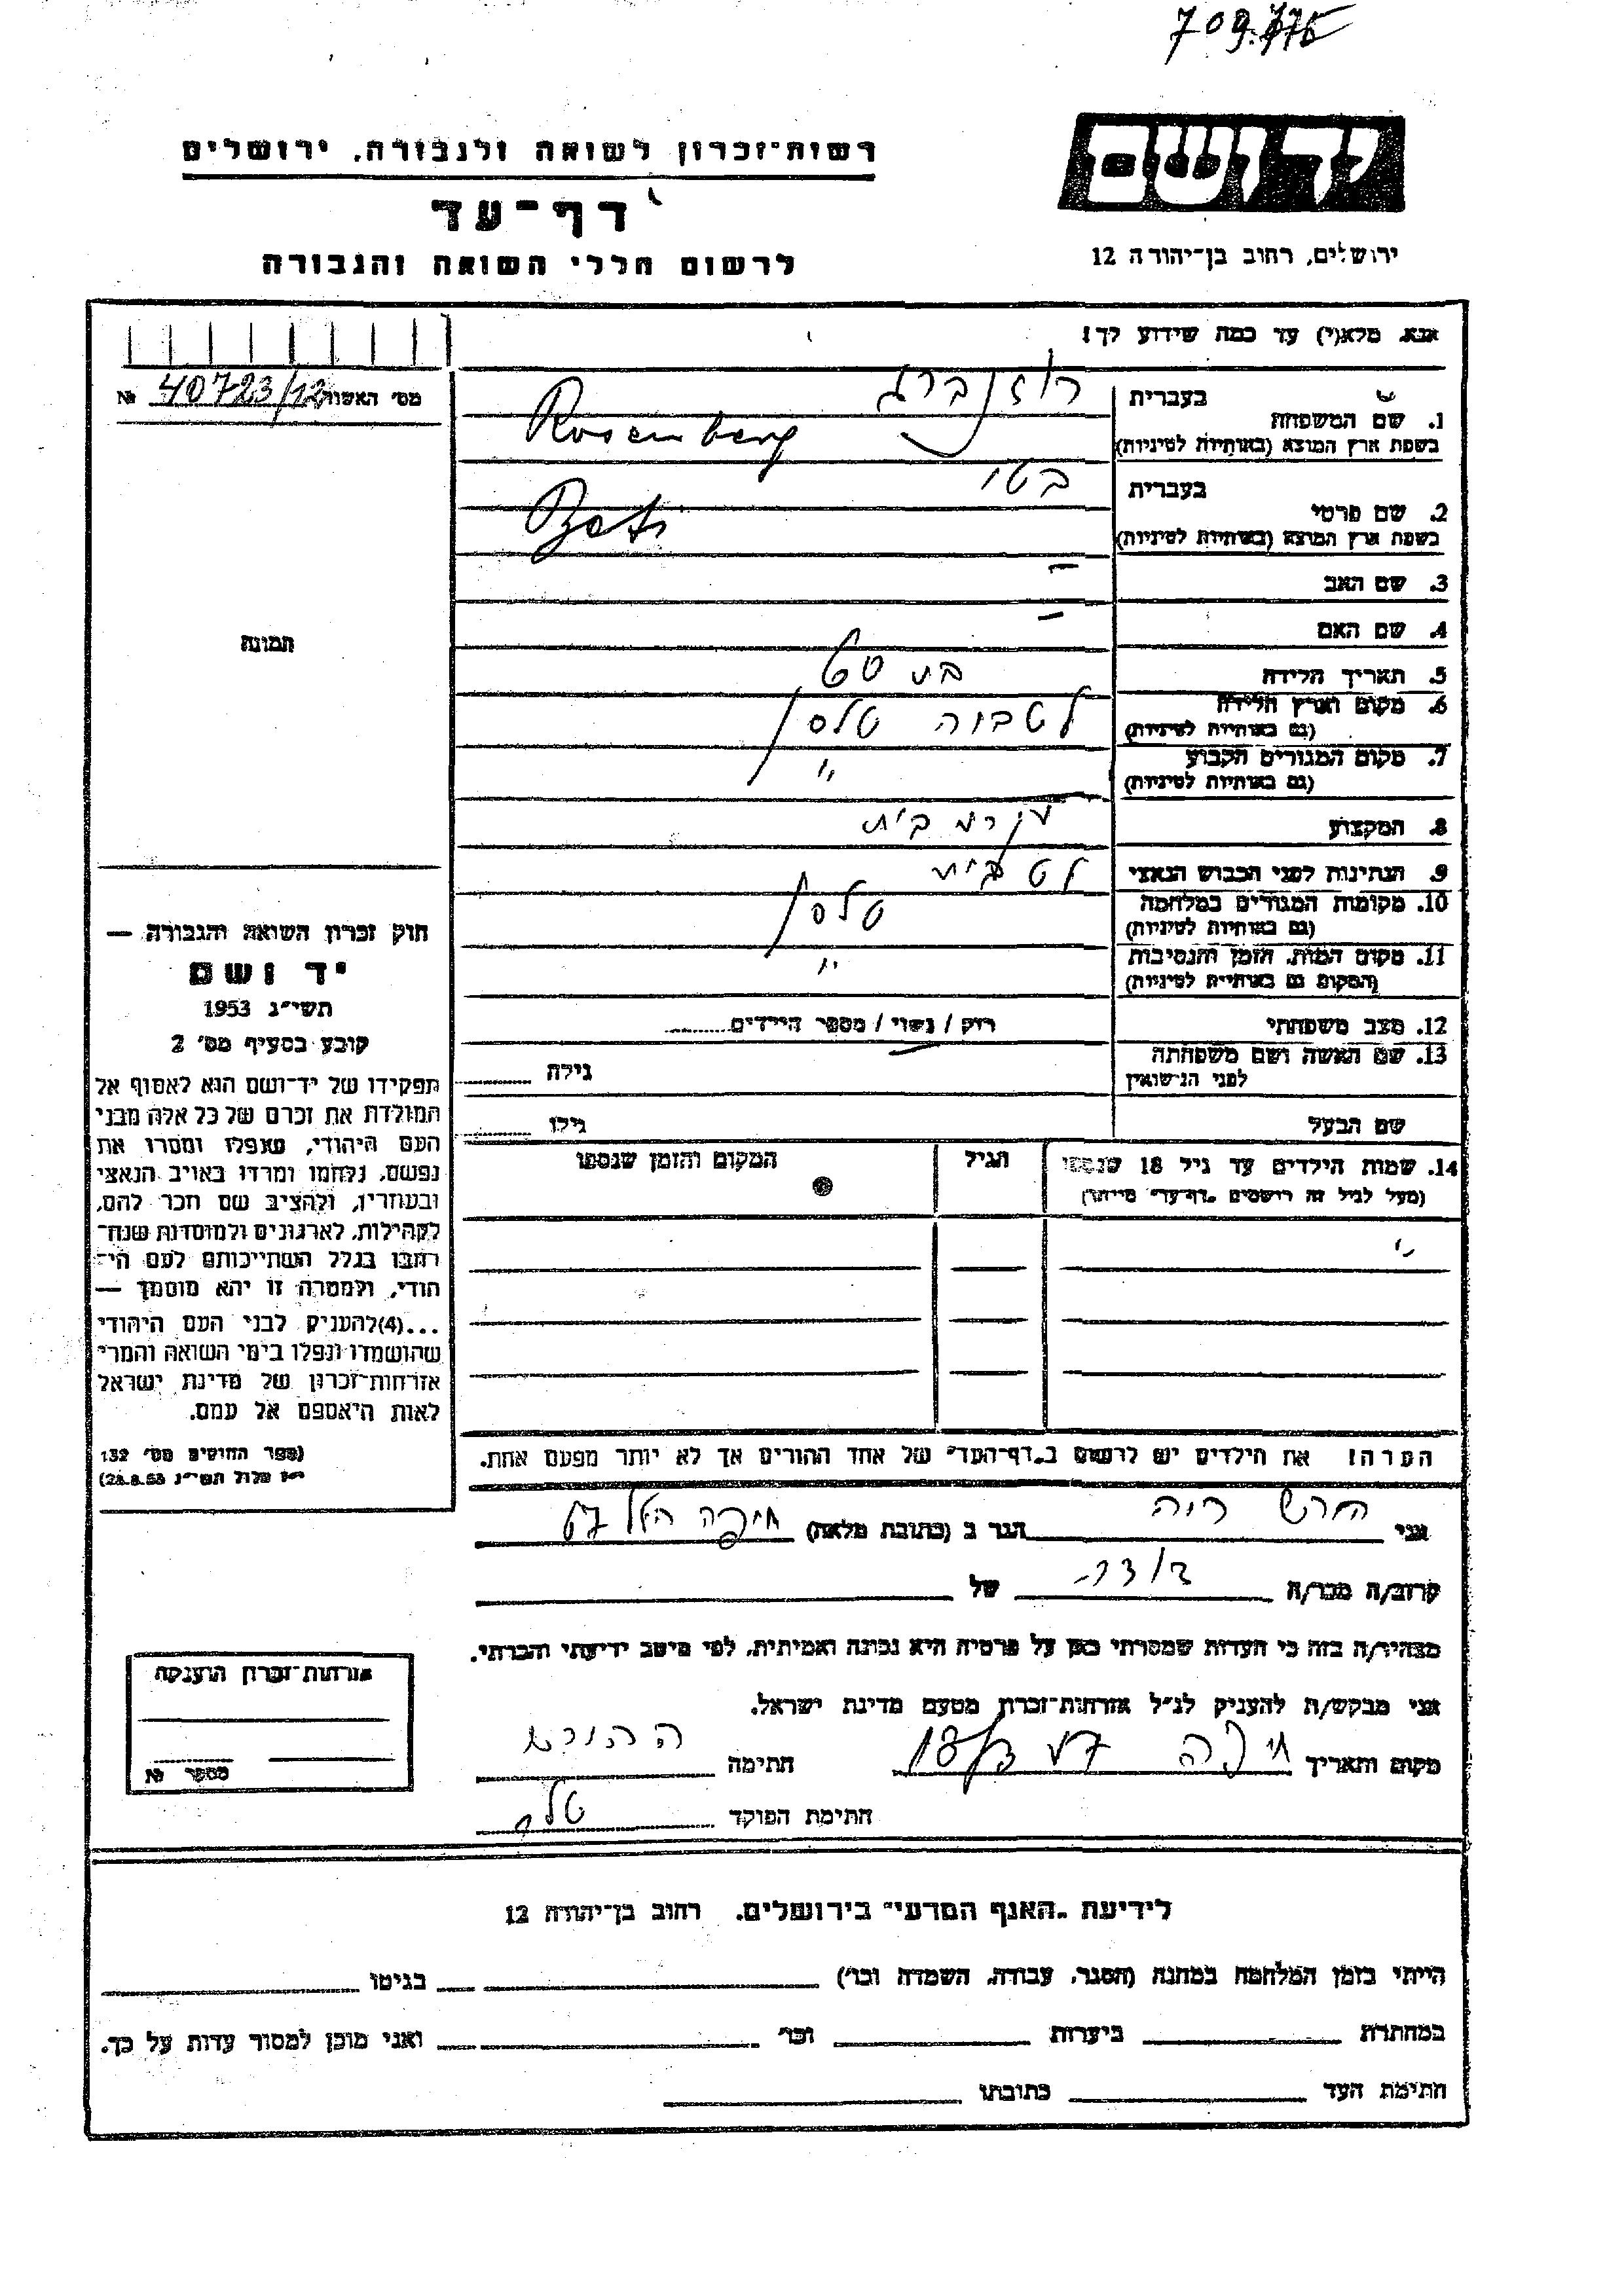 709.775
רשות־זכרון לשואה ולגבורה, ירושלים
דף־עד
לרשום חללי השואה והגבורה
יד ושם
ירושלים, רחוב בן־יהודה 12
אנא, מלא(י) עד כמה שידוע לך!
מס׳ האשור 40723/12 №
בעברית רוזנברג
1. שם המשפחה
בשפת ארץ המוצא (באותיות לטיניות) Rosenberg
בעברית בטי
2. שם פרטי
בשפת ארץ המוצא (באותיות לטיניות) Beti
3. שם האב –
4. שם האם –
תמונה
5. תאריך הלידה בת
6. מקום וארץ הלידה
(גם באותיות לטיניות) לטביה טלסן
7. מקום המגורים הקבוע
(גם באותיות לטיניות) "
8. המקצוע עקרת בית
9. הנתינות לפני הכבוש הנאצי לטבית
10. מקומות המגורים במלחמה
(גם באותיות לטיניות) טלסן
11. מקום המות, הזמן והנסיבות
(המקום גם באותיות לטיניות) "
12. מצב משפחתי רווק / נשוי / מספר הילדים
13. שם האשה ושם משפחתה
לפני הנישואין גילה
שם הבעל גילו
14. שמות הילדים עד גיל 18 שנספו הגיל המקום והזמן שנספו
(מעל לגיל זה רושמים „דף־עד״ מיוחד)
חוק זכרון השואה והגבורה —
יד ושם
תשי״ג 1953
קובע בסעיף מס׳ 2
תפקידו של יד־ושם הוא לאסוף אל
המולדת את זכרם של כל אלה מבני
העם היהודי, שנפלו ומסרו את
נפשם, נלחמו ומרדו באויב הנאצי
ובעוזריו, ולהציב שם וזכר להם,
לקהילות, לארגונים ולמוסדות שנח־
רבו בגלל השתייכותם לעם הי־
הודי, ולמטרה זו יהא מוסמך —
...(4)להעניק לבני העם היהודי
שהושמדו ונפלו בימי השואה והמרי
אזרחות־זכרון של מדינת ישראל
לאות היאספם אל עמם.
(ספר החוקים מס׳ 132
י״ז אלול תשי״ג 28.8.53)
הערה! את הילדים יש לרשום ב„דף־העד״ של אחד ההורים אך לא יותר מפעם אחת.
אני חרש חיה הגר ב (כתובת מלאה) חיפה
קרוב/ה מכר/ה של
מצהיר/ה בזה כי העדות שמסרתי כאן על פרטיה היא נכונה ואמיתית, לפי מיטב ידיעתי והכרתי.
אני מבקש/ת להעניק לנ״ל אזרחות־זכרון מטעם מדינת ישראל.
מקום ותאריך חיפה חתימה
חתימת הפוקד
אזרחות־זכרון הוענקה
מספר №
לידיעת „האגף המדעי״ בירושלים. רחוב בן־יהודה 12
הייתי בזמן המלחמה במחנה (הסגר, עבודה, השמדה וכו׳) בגיטו
במחתרת ביערות וכו׳ ואני מוכן למסור עדות על כך.
חתימת העד כתובתו